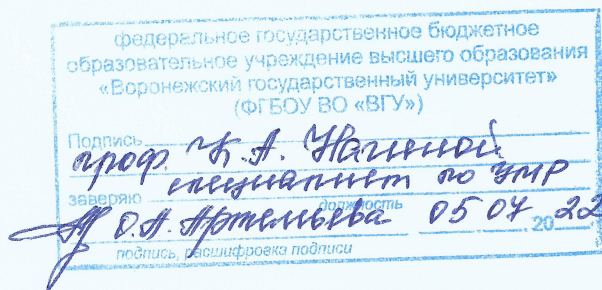 федеральное государственное бюджетное
образовательное учреждение высшего образования
«Воронежский государственный университет»
(ФГБОУ ВО «ВГУ»)
Подпись
проф. К. А. Нагиной
специалист по УМР
заверяю
должность
О.А. Артемьева 05 07 2022
подпись, расшифровка подписи